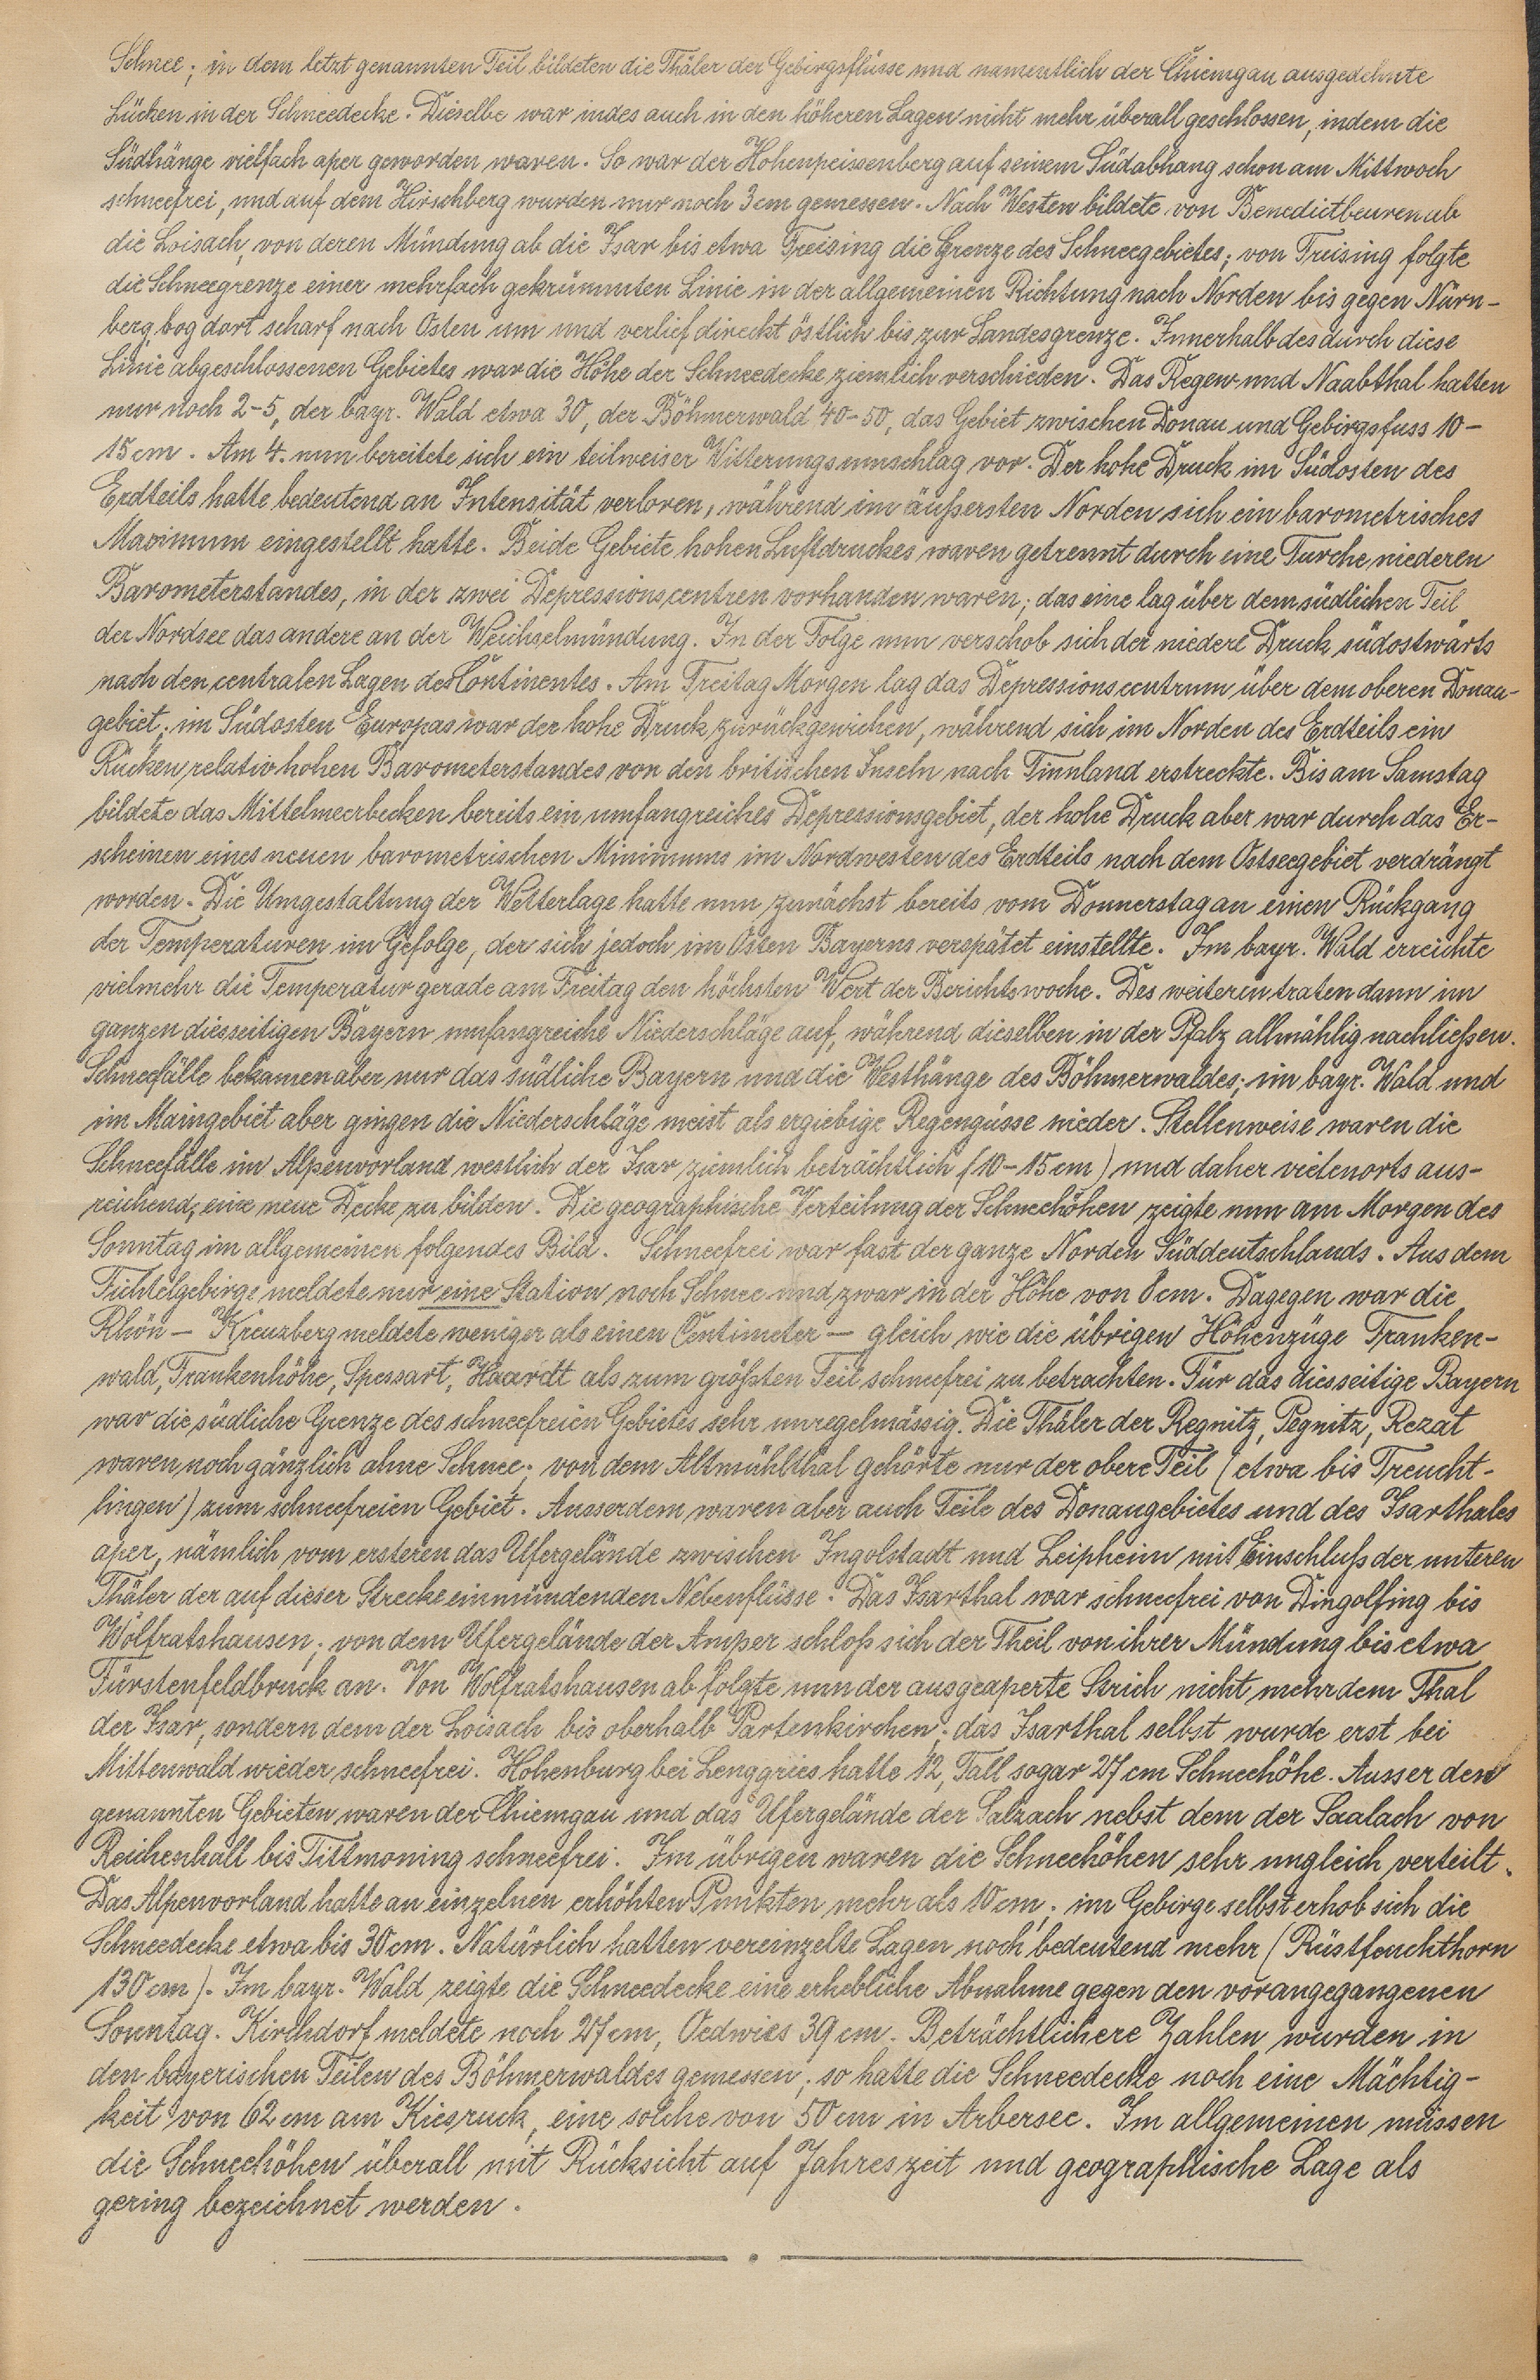 Schnee; in dem letzt genannten Teil bildeten die Thäler der Gebirgsflüsse und namentlich der Chiemgau ausgedehnte
Lücken in der Schneedecke. Dieselbe war indes auch in den höheren Lagen nicht mehr überall geschlossen, indem die
Südhänge vielfach aper geworden waren. So war der Hohenpeissenberg auf seinem Südabhang schon am Mittwoch
schneefrei, und auf dem Hirschberg wurden nur noch 3 cm gemessen. Nach Westen bildete von Benedictbeuren ab
die Loisach, von deren Mündung ab die Isar bis etwa Freising die Grenze des Schneegebietes; von Freising folgte
die Schneegrenze einer mehrfach gekrümmten Linie in der allgemeinen Richtung nach Norden bis gegen Nürn-
berg, bog dort scharf nach Osten um und verlief direckt östlich bis zur Landesgrenze. Innerhalb des durch diese
Linie abgeschlossenen Gebietes war die Höhe der Schneedecke ziemlich verschieden. Das Regen und Naabthal hatten
nur noch 2-5, der bayr. Wald etwa 30, der Böhmerwald 40-50, das Gebiet zwischen Donau und Gebirgsfuss 10-
15 cm. Am 4. nun bereitete sich ein teilweiser Witterungsumschlag vor. Der hohe Druck im Südosten des
Erdteils hatte bedeutend an Intensität verloren, während im äußersten Norden sich ein barometrisches
Maximum eingestellt hatte. Beide Gebiete hohen Luftdruckes waren getrennt durch eine Furche niederen
Barometerstandes, in der zwei Depressionscentren vorhanden waren; das eine lag über dem südlichen Teil
der Nordsee das andere an der Weichselmündung. In der Folge nun verschob sich der niedere Druck südostwärts
nach den centralen Lagen des Continentes. Am Freitag Morgen lag das Depressionscentrum über dem oberen Donau-
gebiet; im Südosten Europas war der hohe Druck zurückgewichen, während sich im Norden des Erdteils ein
Rücken relativ hohen Barometerstandes von den britischen Inseln nach Finnland erstreckte. Bis am Samstag
bildete das Mittelmeerbecken bereits ein umfangreiches Depressionsgebiet, der hohe Druck aber war durch das Er-
scheinen eines neuen barometrischen Minimums im Nordwesten des Erdteils nach dem Ostseegebiet verdrängt
worden. Die Umgestaltung der Wetterlage hatte nun zunächst bereits vom Donnerstag an einen Rückgang
der Temperaturen im Gefolge, der sich jedoch im Osten Bayerns verspätet einstellte. Im bayr. Wald erreichte
vielmehr die Temperatur gerade am Freitag den höchsten Wert der Berichtswoche. Des weiteren traten dann im
ganzen diesseitigen Bayern umfangreiche Niederschläge auf, während dieselben in der Pfalz allmählig nachließen.
Schneefälle bekamen aber nur das südliche Bayern und die Westhänge des Böhmerwaldes; im bayr. Wald und
im Maingebiet aber gingen die Niederschläge meist als ergiebige Regengüsse nieder. Stellenweise waren die
Schneefälle im Alpenvorland westlich der Isar ziemlich beträchtlich (10-15 cm) und daher vielenorts aus-
reichend, eine neue Decke zu bilden. Die geographische Verteilung der Schneehöhen zeigte nun am Morgen des
Sonntag im allgemeinen folgendes Bild. Schneefrei war fast der ganze Norden Süddeutschlands. Aus dem
Fichtelgebirge meldete nur eine Station noch Schnee und zwar in der Höhe von 8 cm. Dagegen war die
Rhön - Kreuzberg meldete weniger als einen Centimeter - gleich wie die übrigen Höhenzüge Franken-
wald, Frankenhöhe, Spessart, Haardt als zum größten Teil schneefrei zu betrachten. Für das diesseitige Bayern
war die südliche Grenze des schneefreien Gebietes sehr unregelmässig. Die Thäler der Regnitz, Pegnitz, Rezat
waren noch gänzlich ohne Schnee; von dem Altmühlthal gehörte nur der obere Teil (etwa bis Treucht-
lingen) zum schneefreien Gebiet. Ausserdem waren aber auch Teile des Donaugebietes und des Isarthales
aper, nämlich vom ersteren das Ufergelände zwischen Ingolstadt und Leipheim mit Einschluß der unteren
Thäler der auf dieser Strecke einmündenden Nebenflüsse. Das Isarthal war schneefrei von Dingolfing bis
Wolfratshausen; von dem Ufergelände der Amper schloß sich der Theil von ihrer Mündung bis etwa
Fürstenfeldbruck an. Von Wolfratshausen ab folgte nun der ausgeaperte Strich nicht mehr dem Thal
der Isar, sondern dem der Loisach bis oberhalb Partenkirchen; das Isarthal selbst wurde erst bei
Mittenwald wieder schneefrei. Hohenburg bei Lenggries hatte 12, Fall sogar 27 cm Schneehöhe. Ausser den
genannten Gebieten waren der Chiemgau und das Ufergelände der Salzach nebst dem der Saalach von
Reichenhall bis Tittmoning schneefrei. Im übrigen waren die Schneehöhen sehr ungleich verteilt.
Das Alpenvorland hatte an einzelnen erhöhten Punkten mehr als 10 cm; im Gebirge selbst erhob sich die
Schneedecke etwa bis 30 cm. Natürlich hatten vereinzelte Lagen noch bedeutend mehr (Rüstfeuchthorn
130 cm). Im bayr. Wald zeigte die Schneedecke eine erhebliche Abnahme gegen den vorangegangenen
Sonntag. Kirchdorf meldete noch 27 cm, Oedwies 39 cm. Beträchtlichere Zahlen wurden in
den bayerischen Teilen des Böhmerwaldes gemessen; so hatte die Schneedecke noch eine Mächtig-
keit von 62 cm am Kiesruck, eine solche von 50 cm in Arbersee. Im allgemeinen müssen
die Schneehöhen überall mit Rücksicht auf Jahreszeit und geographische Lage als
gering bezeichnet werden.